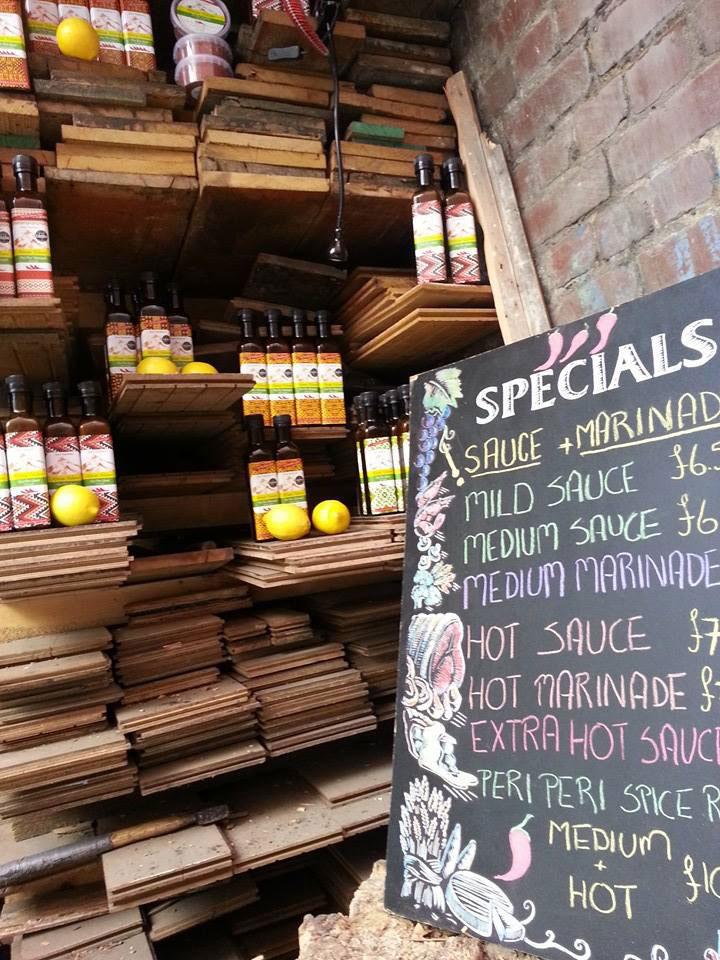 SPECIALS
SAUCE + MARINAD
MILD SAUCE £6.5
MEDIUM SAUCE £6
MEDIUM MARINADE
HOT SAUCE £7
HOT MARINADE £
EXTRA HOT SAUC
PERI PERI SPICE R
MEDIUM
+
HOT £10